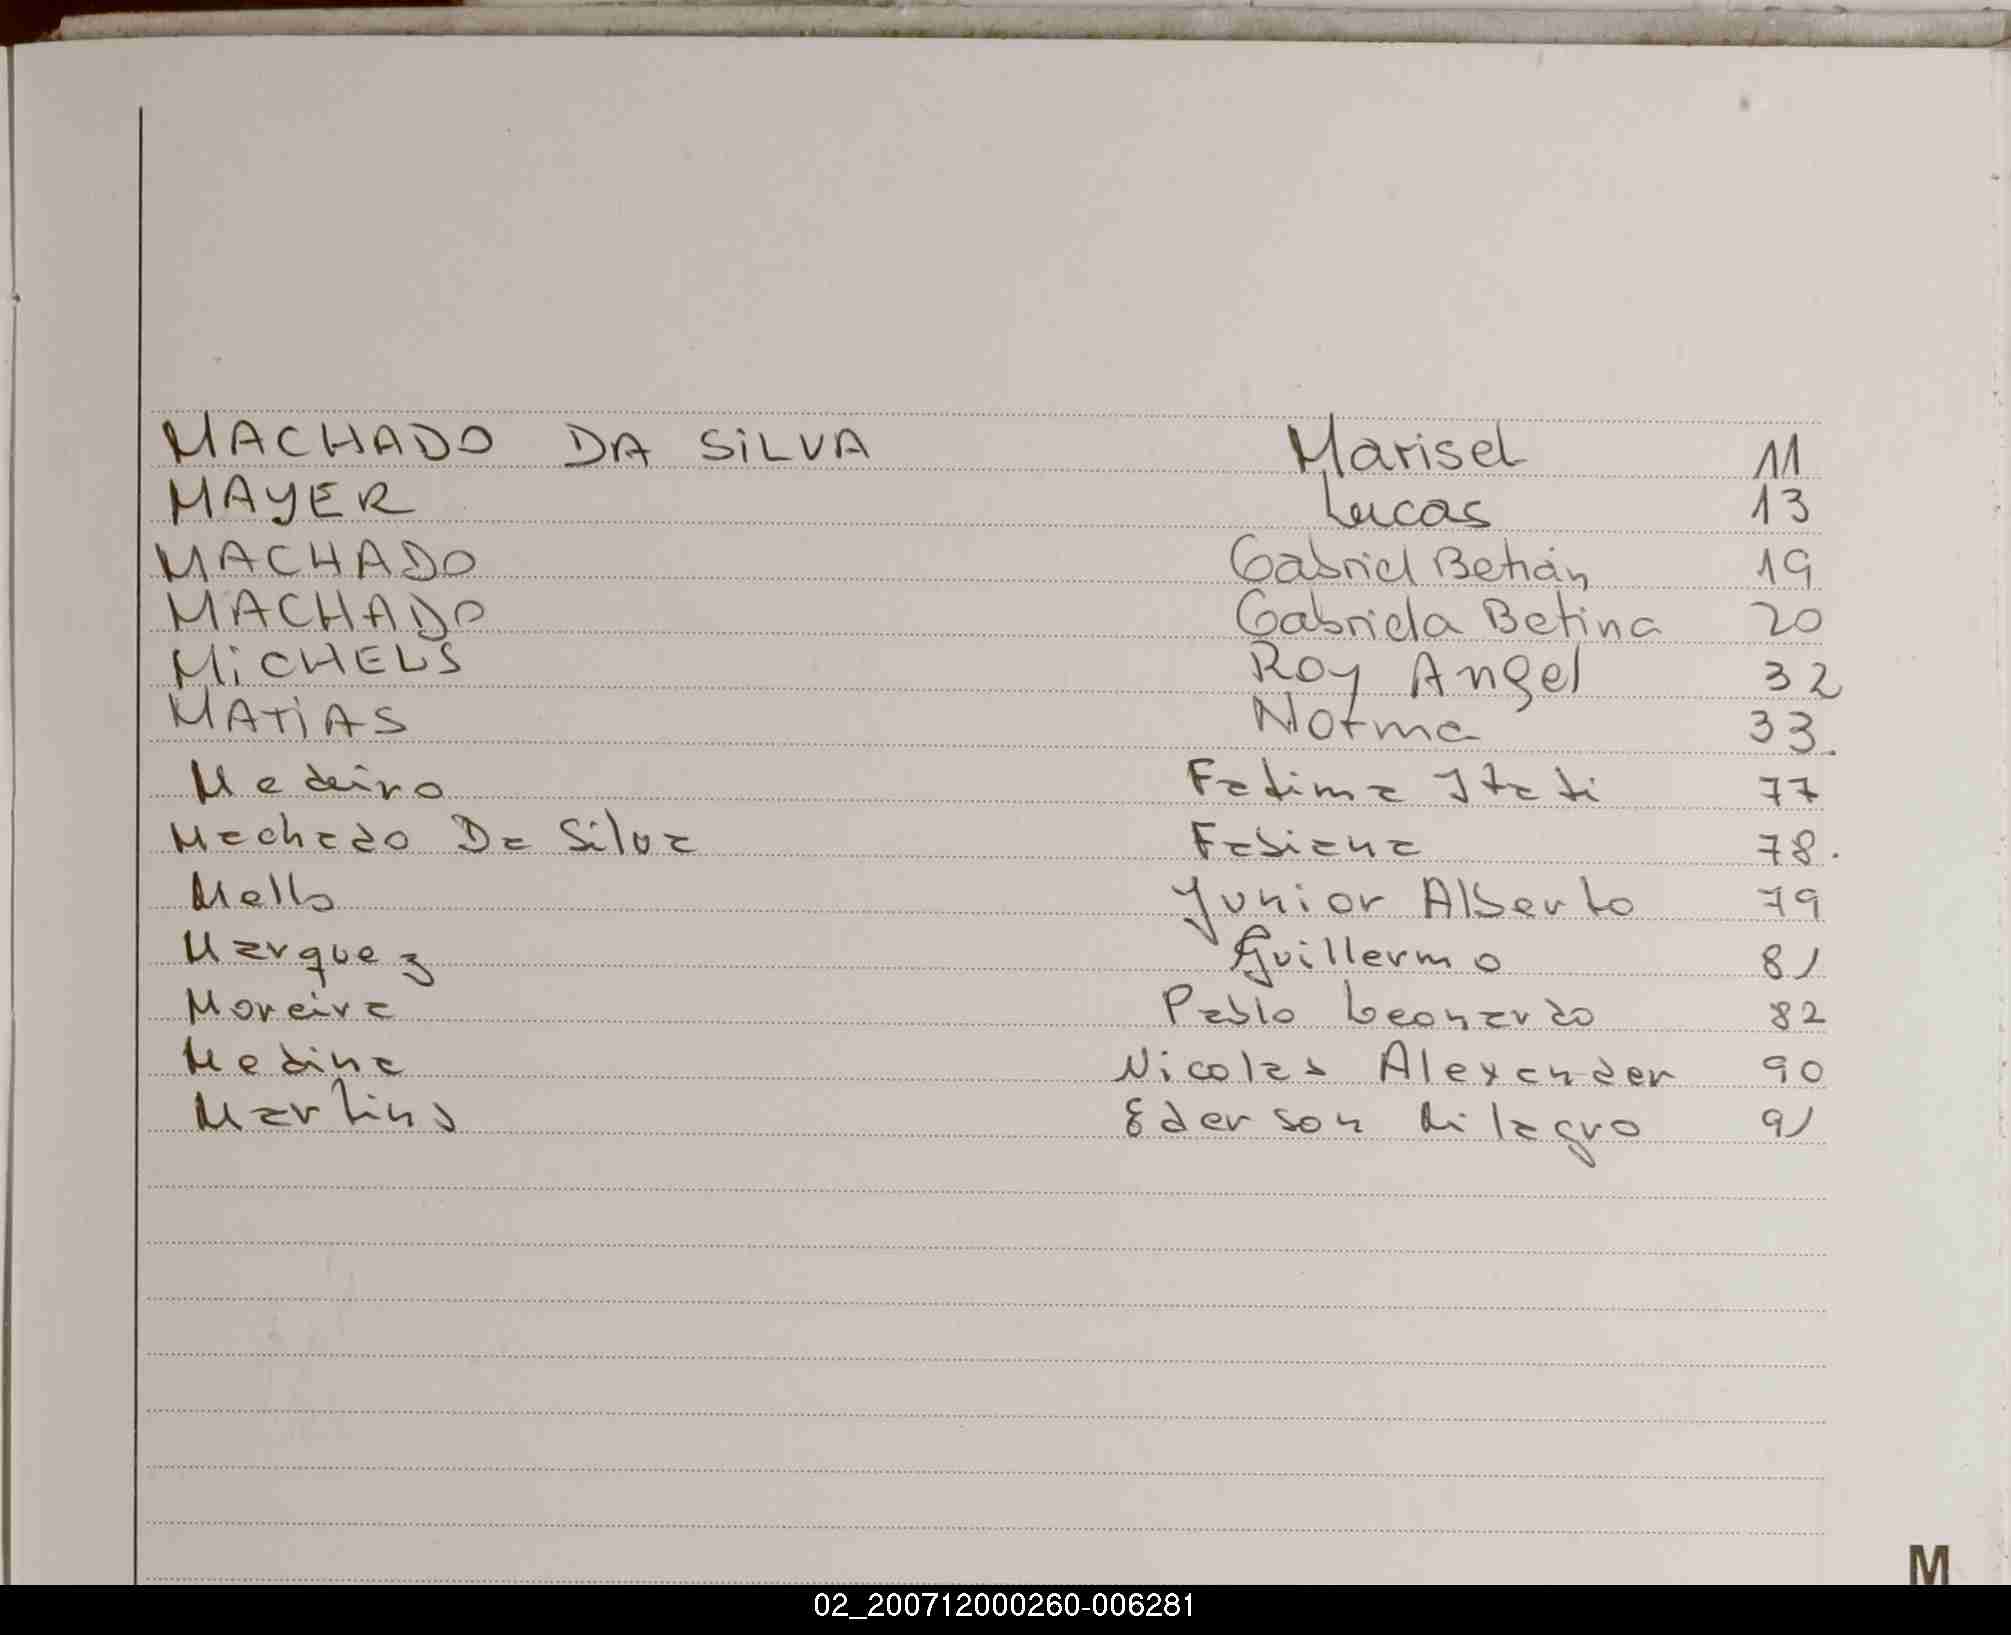 MACHADO DA SiLVA Marisel 11
MAYER Lucas 13
MACHADO Gabriel Betián 19
MACHADO Gabriela Betina 20
MiCHELS Roy Angel 32
MATiAS Norma 33.
Medeiro Fatima Itati 77
Machado Da Silva Fabiana 78.
Mello Yunior Alberto 79
Marquez Guillermo 81
Moreira Pablo Leonardo 82
Medina Nicolas Alexander 90
Martins Ederson Milagro 91
M
02_200712000260-006281